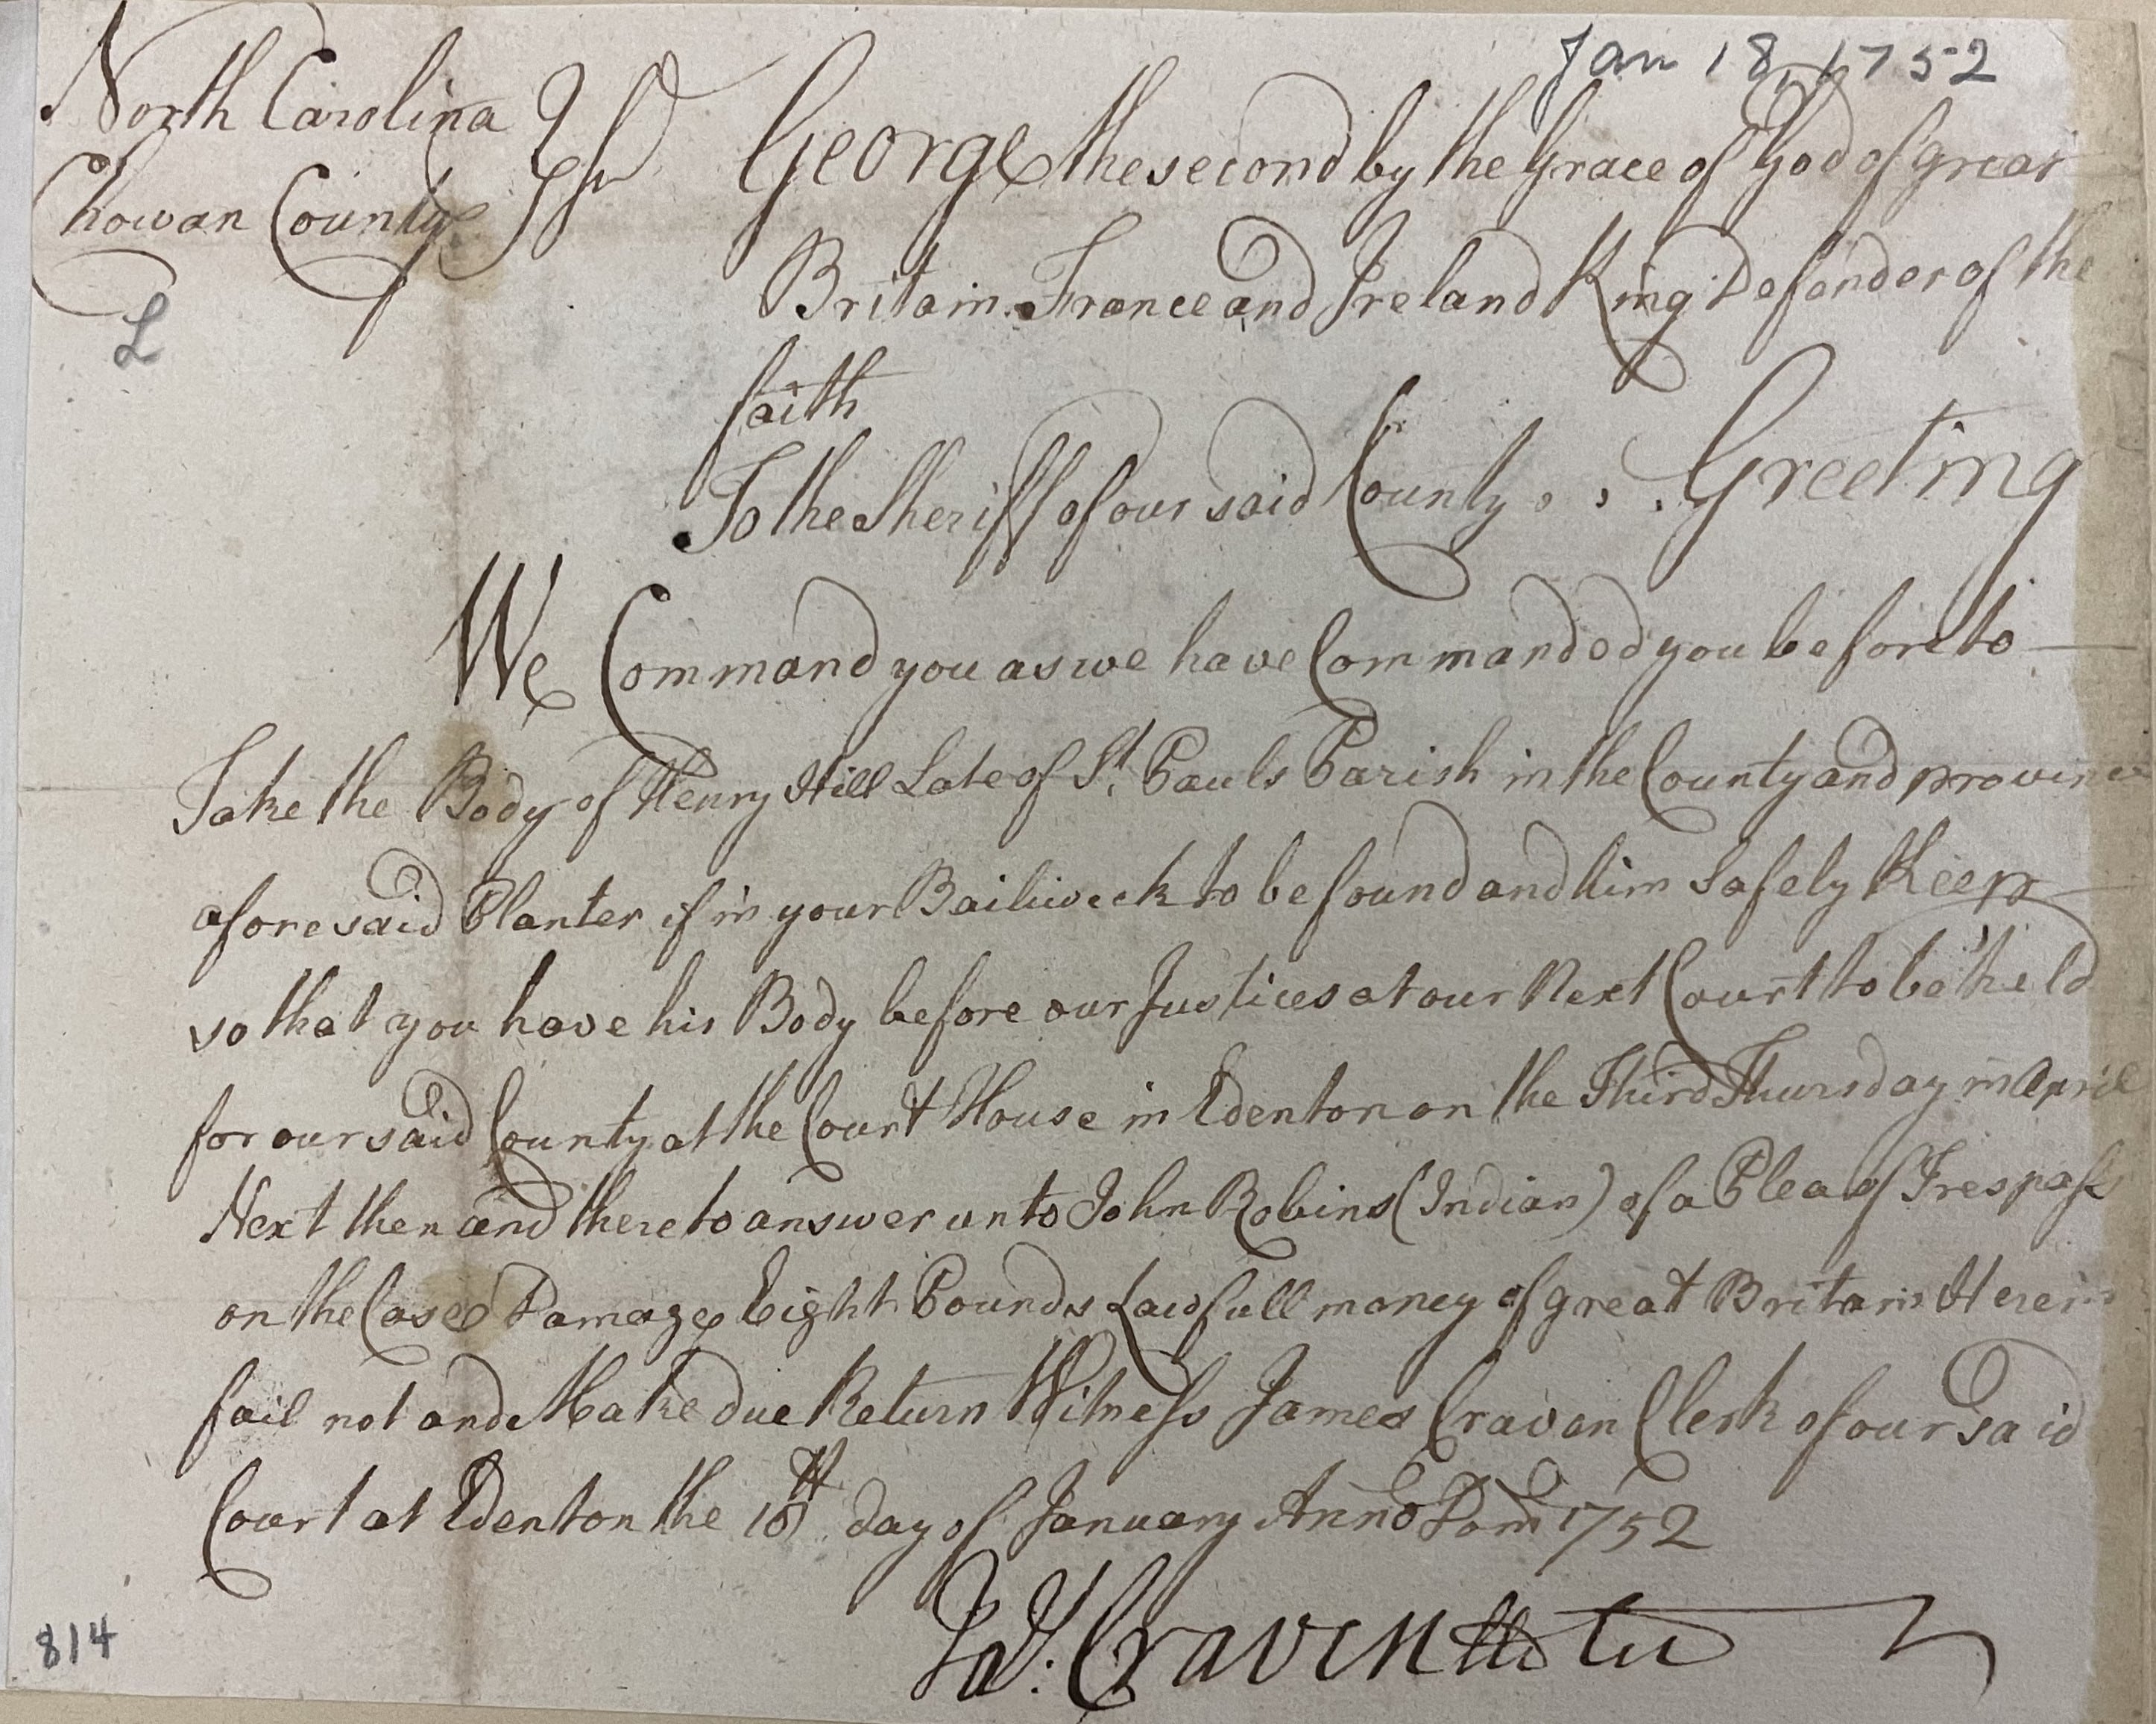 Jan 18, 1752
North Carolina
Chowan County
George the second by the Grace of God of great
Britain France and Ireland King Defender of the
faith
To the Sheriff of our said County . . . Greeting
L
We Command you as we have Commanded you before to
Take the Body of Henry Hill Late of St. Pauls Parish in the County and province
aforesaid Planter if in your Bailiweek to be found and him Safely Keep
so that you have his Body before our Justices at our Next Court to be held
for our said County at the Court House in Edenton on the Third Thursday in April
Next then and there to answer unto John Robins (Indian) of a Plea of Trespass
on the Case Damage Eight Pounds Lawfull money of great Britain Herein
fail not and Make due Return Witness James Craven Clerk of our said
Court at Edenton the 18th day of January Anno Dom 1752
Jas: Craven
814